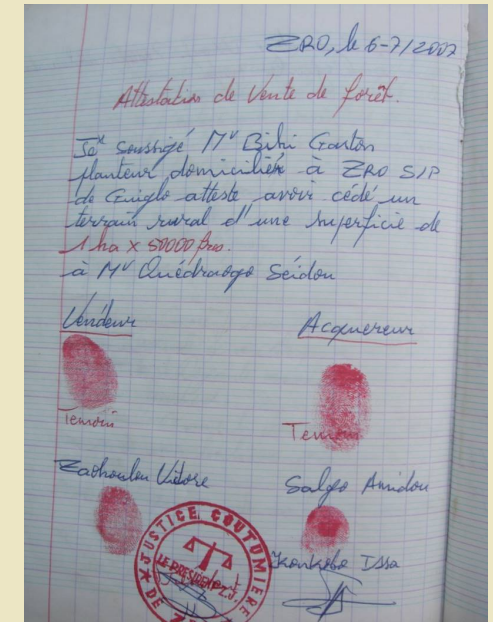 ZRO, le 6-7/2007
Attestation de Vente de forêt.
Je soussigé Mr Bihi Gaston
planteur domicilié à ZRO S/P
de Guiglo atteste avoir cédé un
terrain rural d'une superficie de
1 ha x 50000 frcs.
à Mr Ouédraogo Seidou
Vendeur
Acquereur
Temoin
Temoin
Zaohoulou Vidore
Salgo Amidou
Konkobo Issa
JUSTICE COUTUMIERE
LE PRESIDENT Z.J.
DE ZRO